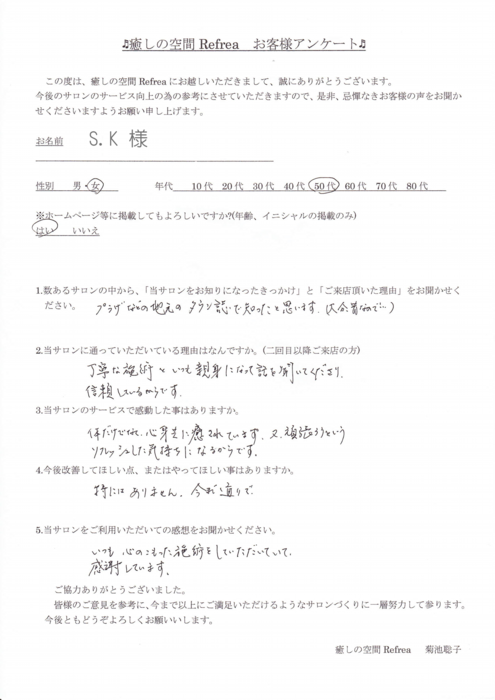 ♬癒しの空間 Refrea　お客様アンケート♬
この度は、癒しの空間 Refrea にお越しいただきまして、誠にありがとうございます。
今後のサロンのサービス向上の為の参考にさせていただきますので、是非、忌憚なきお客様の声をお聞か
せくださいますようお願い申し上げます。
お名前　S.K 様
性別　男・女　年代　10代　20代　30代　40代　50代　60代　70代　80代
※ホームページ等に掲載してもよろしいですか?(年齢、イニシャルの掲載のみ)
はい　いいえ
1.数あるサロンの中から、「当サロンをお知りになったきっかけ」と「ご来店頂いた理由」をお聞かせく
ださい。　プラザなどの地元のタウン誌で知ったと思います。(大分昔なので…)
2.当サロンに通っていただいている理由はなんですか。(二回目以降ご来店の方)
丁寧な施術といつも親身になって話を聞いてくださり、
信頼しているからです。
3.当サロンのサービスで感動した事はありますか。
体だけでなく、心身共に癒されています。又、頑張ろうという
リフレッシュした気持ちになるからです。
4.今後改善してほしい点、またはやってほしい事はありますか。
特にはありません。今まで通りで
5.当サロンをご利用いただいての感想をお聞かせください。
いつも心のこもった施術をしていただいていて、
感謝しています。
ご協力ありがとうございました。
皆様のご意見を参考に、今まで以上にご満足いただけるようなサロンづくりに一層努力して参ります。
今後ともどうぞよろしくお願いいします。
癒しの空間 Refrea　菊池聡子